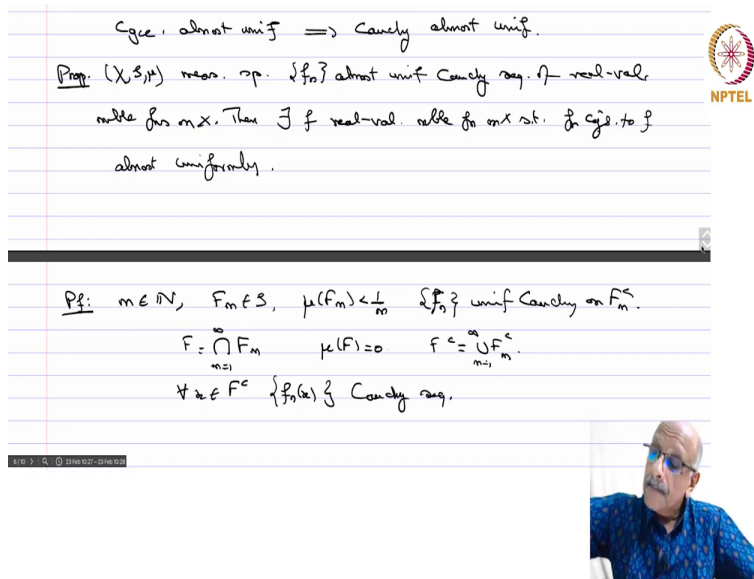 Cgce. almost unif ⟹ Cauchy almost unif.
Prop. (X, S, μ) meas. sp. {fn} almost unif Cauchy seq. of real-val.
mble fns on X. Then ∃ f real-val. mble fn on X s.t. fn cgs. to f
almost uniformly.
NPTEL
Pf: m ∈ ℕ, Fm ∈ S, μ(Fm) < 1/m {fn} unif Cauchy on Fm^c.
F = ⋂_{m=1}^∞ Fm μ(F) = 0 F^c = ⋃_{m=1}^∞ Fm^c.
∀ x ∈ F^c {fn(x)} Cauchy seq.
6/10 23 Feb 10:27 – 23 Feb 10:28